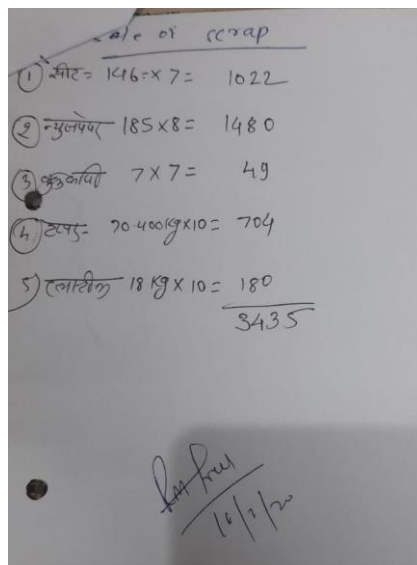 Sale of scrap
① सीट = 146 = × 7 = 1022
② न्युजपेपर 185 × 8 = 1480
③ बुक कापी 7 × 7 = 49
④ 70.400 Kg × 10 = 704
5) प्लास्टीक 18 Kg × 10 = 180
3435
16/3/20